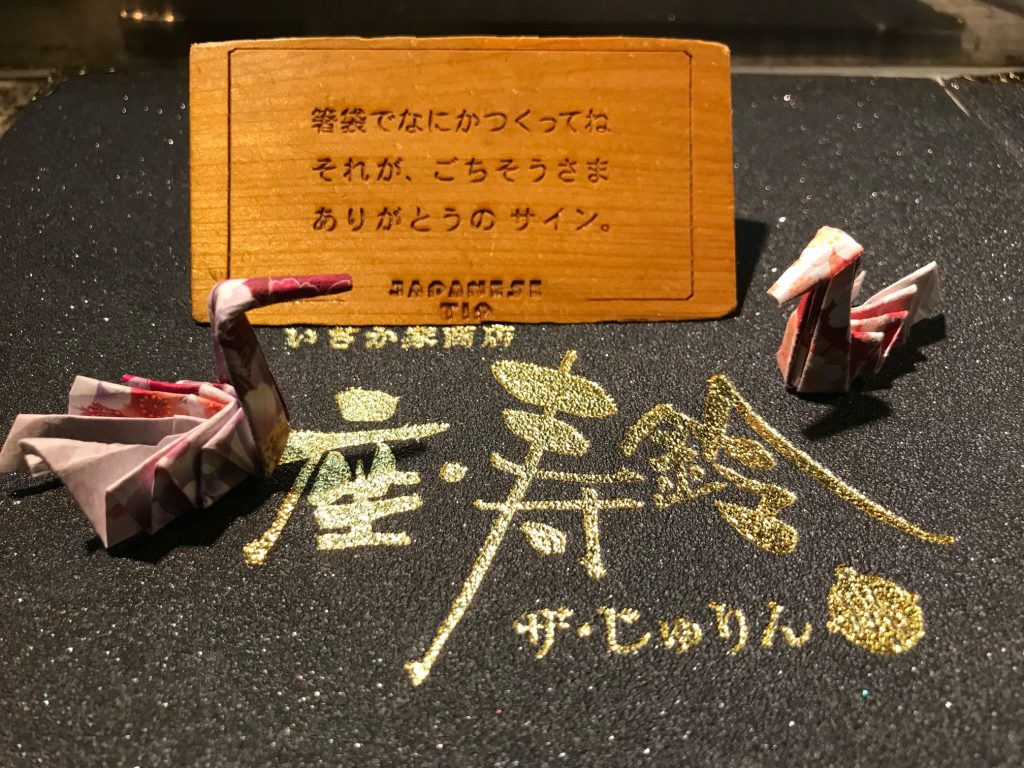 箸袋でなにかつくってね
それが、ごちそうさま
ありがとうの サイン。
JAPANESE
TIP
いさか家商店
座・寿鈴
ザ・じゅりん